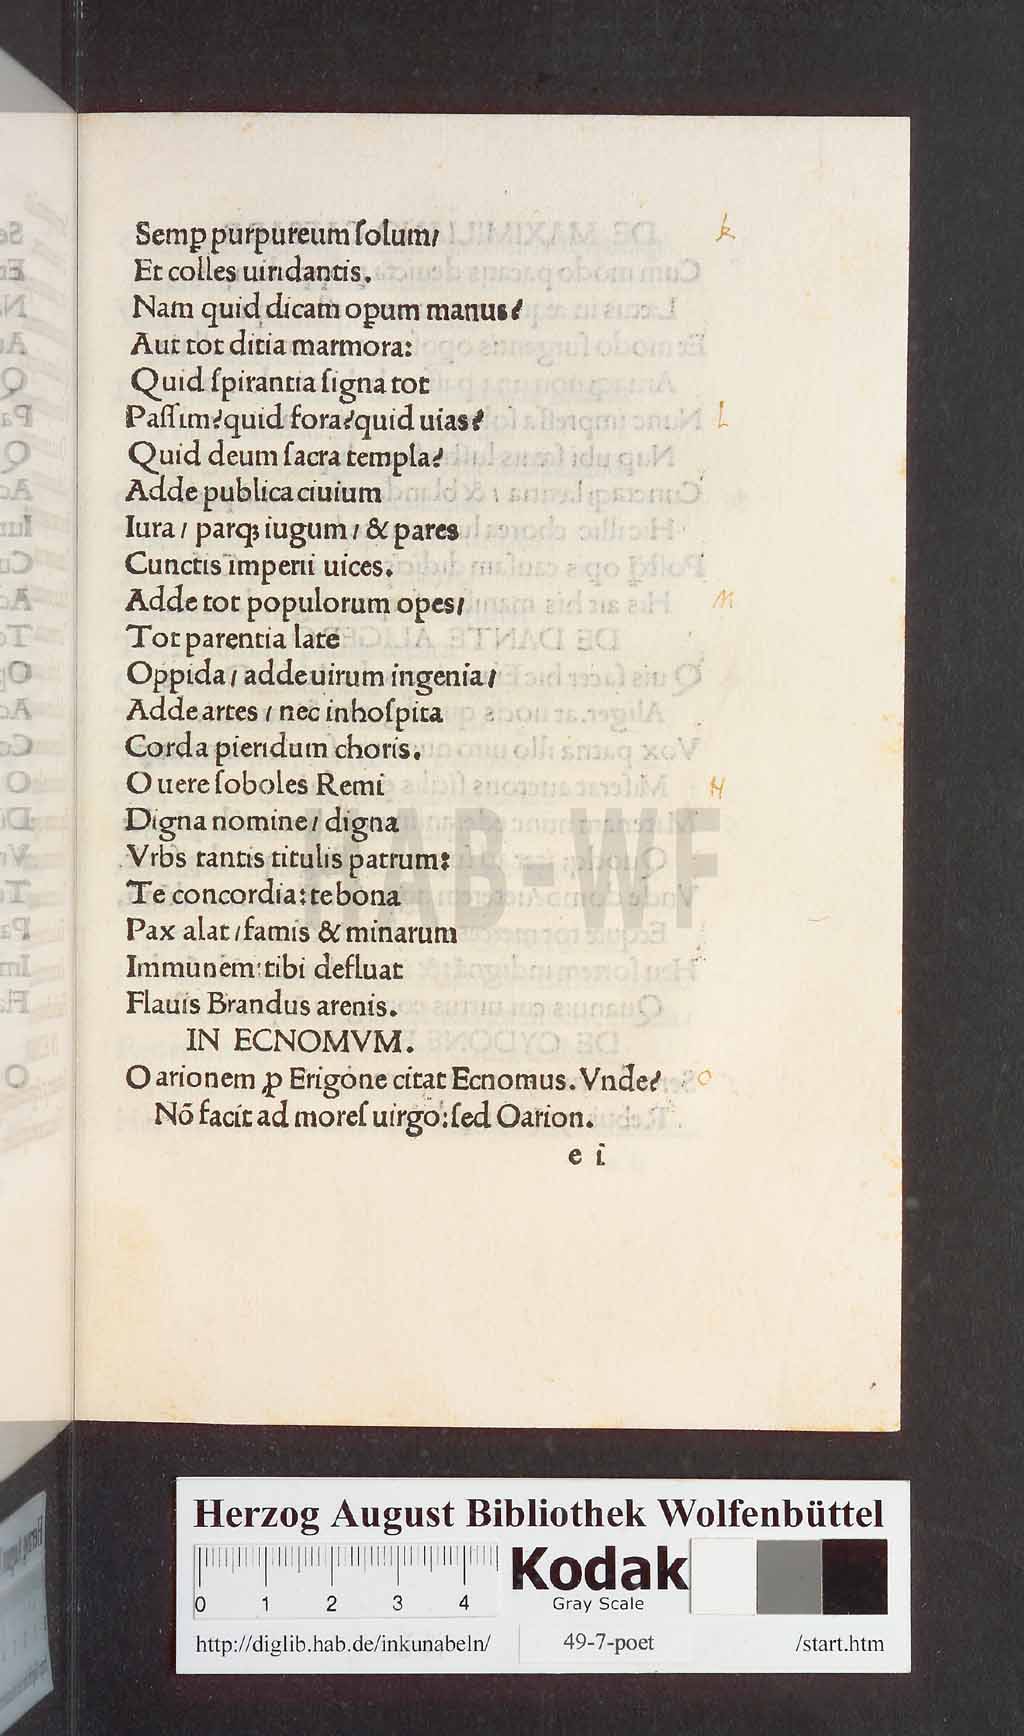 Semꝑ purpureum ſolum/
Et colles uiridantis.
Nam quid dicam opum manus?
Aut tot ditia marmora:
Quid ſpirantia ſigna tot
Paſſim? quid fora? quid uias?
Quid deum ſacra templa?
Adde publica ciuium
Iura / parqꝫ iugum / & pares
Cunctis imperii uices.
Adde tot populorum opes/
Tot parentia late
Oppida / adde uirum ingenia/
Adde artes / nec inhoſpita
Corda pieridum choris.
O uere ſoboles Remi
Digna nomine / digna
Vrbs tantis titulis patrum:
Te concordia: te bona
Pax alat / famis & minarum
Immunem: tibi defluat
Flauis Brandus arenis.
IN ECNOMVM.
Oarionem ꝓ Erigone citat Ecnomus. Vnde?
Nō facit ad moreſ uirgo: ſed Oarion.
e i
k
L
M
N
O
HAB-WF
Herzog August Bibliothek Wolfenbüttel
0 1 2 3 4
Kodak
Gray Scale
http://diglib.hab.de/inkunabeln/ 49-7-poet /start.htm